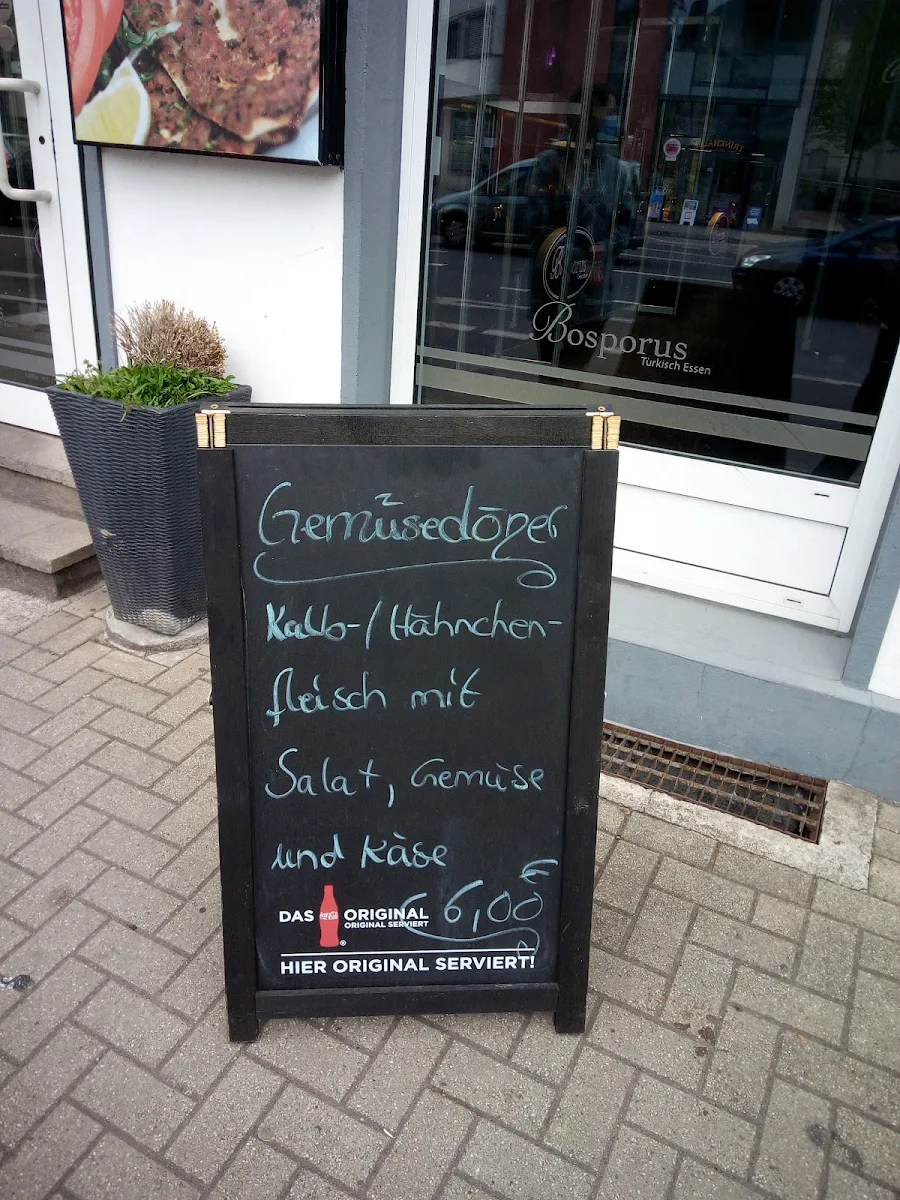 Bosporus
Türkisch Essen
Gemüsedöner
Kalb-/Hähnchen-
fleisch mit
Salat, Gemüse
und Käse
€ 6,00
DAS Coca-Cola ORIGINAL
ORIGINAL SERVIERT
HIER ORIGINAL SERVIERT!